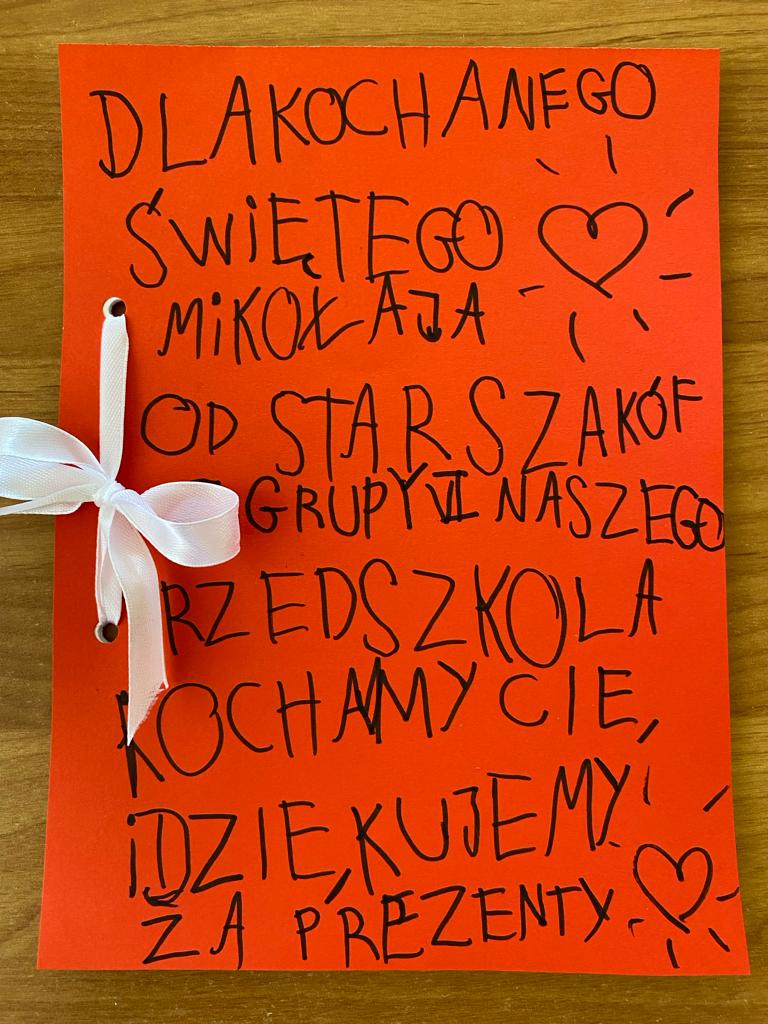 DLA KOCHANEGO
ŚWIĘTEGO
MIKOŁAJA
OD STARSZAKÓF
GRUPY VI NASZEGO
RZEDSZKOLA
KOCHAMY CIE,
i DZIĘKUJEMY
ZA PREZENTY